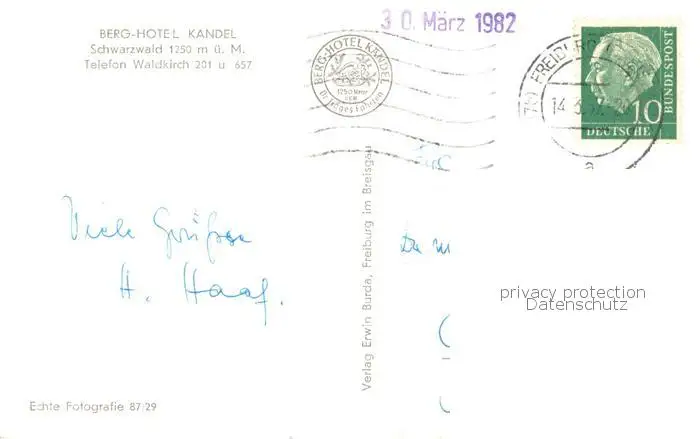 BERG-HOTEL KANDEL
Schwarzwald 1250 m ü. M.
Telefon Waldkirch 201 u 657
30. März 1982
BERG-HOTEL KANDEL
1250 Meter
FREIBURG
14.
10
DEUTSCHE
BUNDESPOST
a
Viele Grüße
H. Haaf.
Verlag Erwin Burda, Freiburg im Breisgau
privacy protection
Datenschutz
Echte Fotografie 87/29